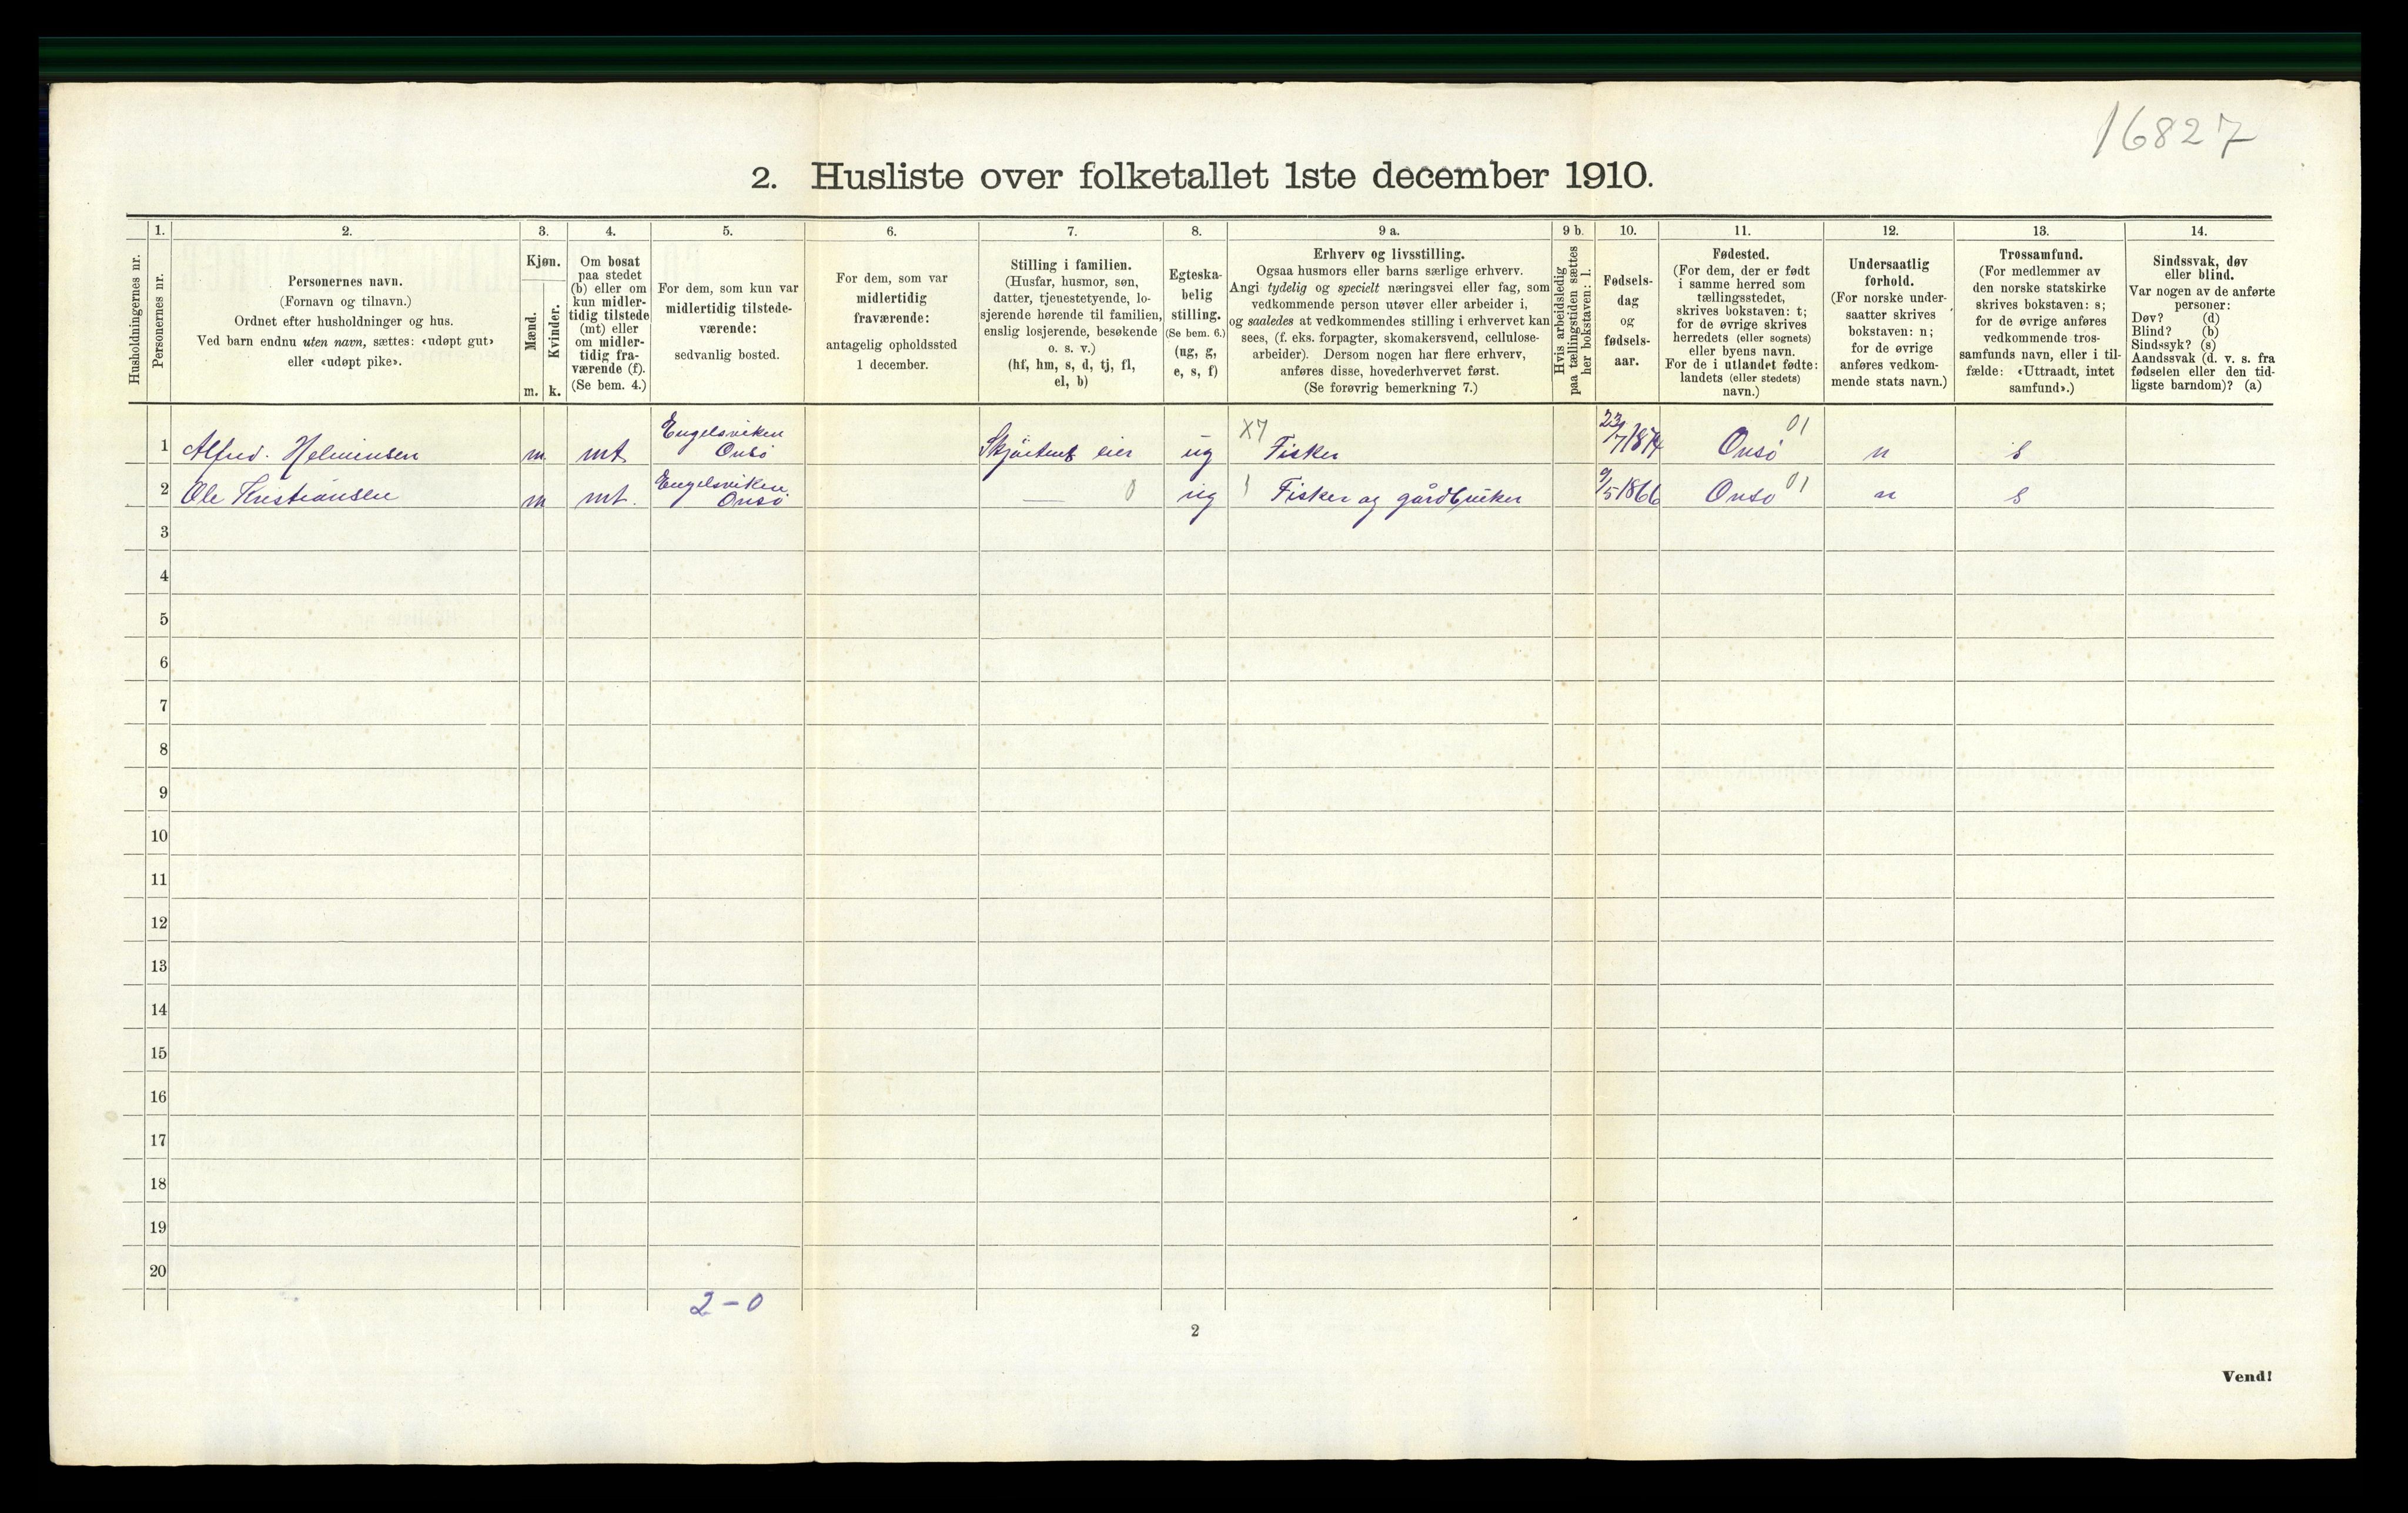 16827
2. Husliste over folketallet 1ste december 1910.
Husholdningernes nr.
1.
Personernes nr.
2.
Personernes navn.
(Fornavn og tilnavn.)
Ordnet efter husholdninger og hus.
Ved barn endnu uten navn, sættes: «udøpt gut»
eller «udøpt pike».
3.
Kjøn.
Mænd.
Kvinder.
m. k.
4.
Om bosat
paa stedet
(b) eller om
kun midler-
tidig tilstede
(mt) eller
om midler-
tidig fra-
værende (f).
(Se bem. 4.)
5.
For dem, som kun var
midlertidig tilstede-
værende:
sedvanlig bosted.
6.
For dem, som var
midlertidig
fraværende:
antagelig opholdssted
1 december.
7.
Stilling i familien.
(Husfar, husmor, søn,
datter, tjenestetyende, lo-
sjerende hørende til familien,
enslig losjerende, besøkende
o. s. v.)
(hf, hm, s, d, tj, fl,
el, b)
8.
Egteska-
belig
stilling.
(Se bem. 6.)
(ug, g,
e, s, f)
9 a.
Erhverv og livsstilling.
Ogsaa husmors eller barns særlige erhverv.
Angi tydelig og specielt næringsvei eller fag, som
vedkommende person utøver eller arbeider i,
og saaledes at vedkommendes stilling i erhvervet kan
sees, (f. eks. forpagter, skomakersvend, cellulose-
arbeider). Dersom nogen har flere erhverv,
anføres disse, hovederhvervet først.
(Se forøvrig bemerkning 7.)
9 b.
Hvis arbeidsledig
paa tællingstiden sættes
her bokstaven: l.
10.
Fødsels-
dag
og
fødsels-
aar.
11.
Fødested.
(For dem, der er født
i samme herred som
tællingsstedet,
skrives bokstaven: t;
for de øvrige skrives
herredets (eller sognets)
eller byens navn.
For de i utlandet fødte:
landets (eller stedets)
navn.)
12.
Undersaatlig
forhold.
(For norske under-
saatter skrives
bokstaven: n;
for de øvrige
anføres vedkom-
mende stats navn.)
13.
Trossamfund.
(For medlemmer av
den norske statskirke
skrives bokstaven: s;
for de øvrige anføres
vedkommende tros-
samfunds navn, eller i til-
fælde: «Uttraadt, intet
samfund».)
14.
Sindssvak, døv
eller blind.
Var nogen av de anførte
personer:
Døv? (d)
Blind? (b)
Sindssyk? (s)
Aandssvak (d. v. s. fra
fødselen eller den tid-
ligste barndom)? (a)
1 Alfred. Helminsen m. mt. Engelsviken Onsö eier ug X7 Fisker 23/7 1874 Onsö 01 n s
2 Ole Kristiansen m mt. Engelsviken Onsö — 0 ug 1 Fisker og gårdbruker 9/5 1866 Onsö 01 n s
3
4
5
6
7
8
9
10
11
12
13
14
15
16
17
18
19
20
2 – 0
2
Vend!